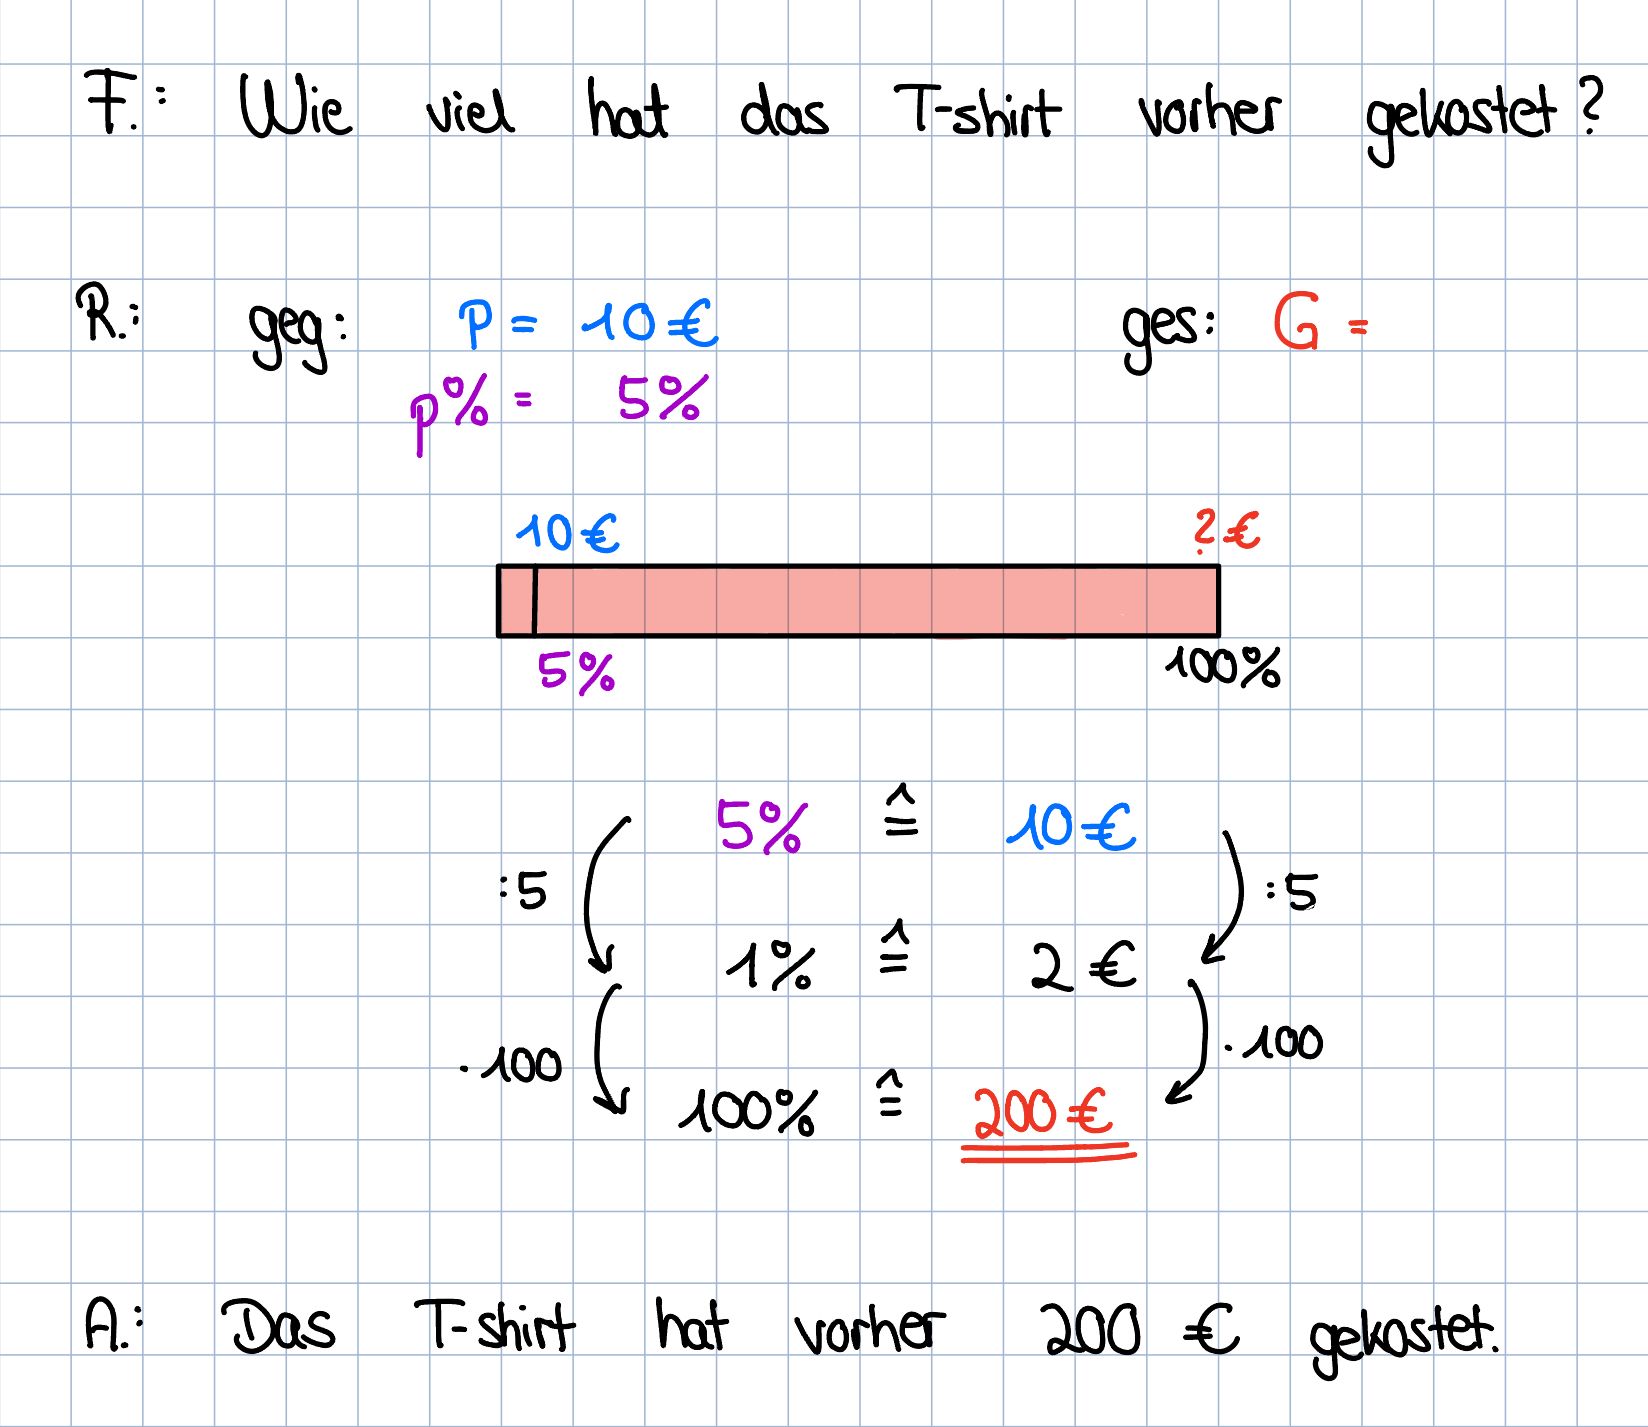 F.: Wie viel hat das T-shirt vorher gekostet?
R.: geg: P = 10€ ges: G =
p% = 5%
10€ ?€
5% 100%
5% ≙ 10€
:5 :5
1% ≙ 2€
·100 ·100
100% ≙ 200€
A.: Das T-shirt hat vorher 200 € gekostet.